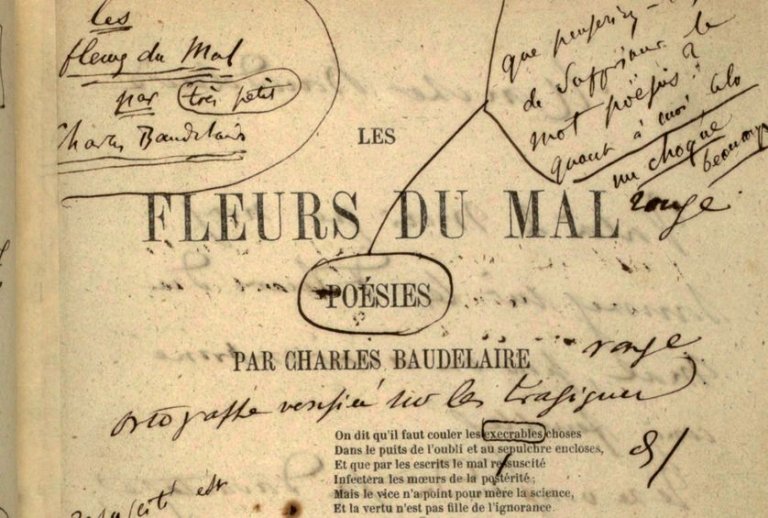 les
fleurs du Mal
par très petit
Charles Baudelaire
que penseriez-
de supprimer le
mot poésies?
quant à moi cela
me choque
beaucoup
LES
FLEURS DU MAL
rouge
POÉSIES
PAR CHARLES BAUDELAIRE
rouge
ortographe vérifiée sur les tragiques
On dit qu'il faut couler les execrables choses
Dans le puits de l'oubli et au sepulchre encloses,
Et que par les escrits le mal resuscité
Infectera les mœurs de la postérité;
Mais le vice n'a point pour mère la science,
Et la vertu n'est pas fille de l'ignorance.
est